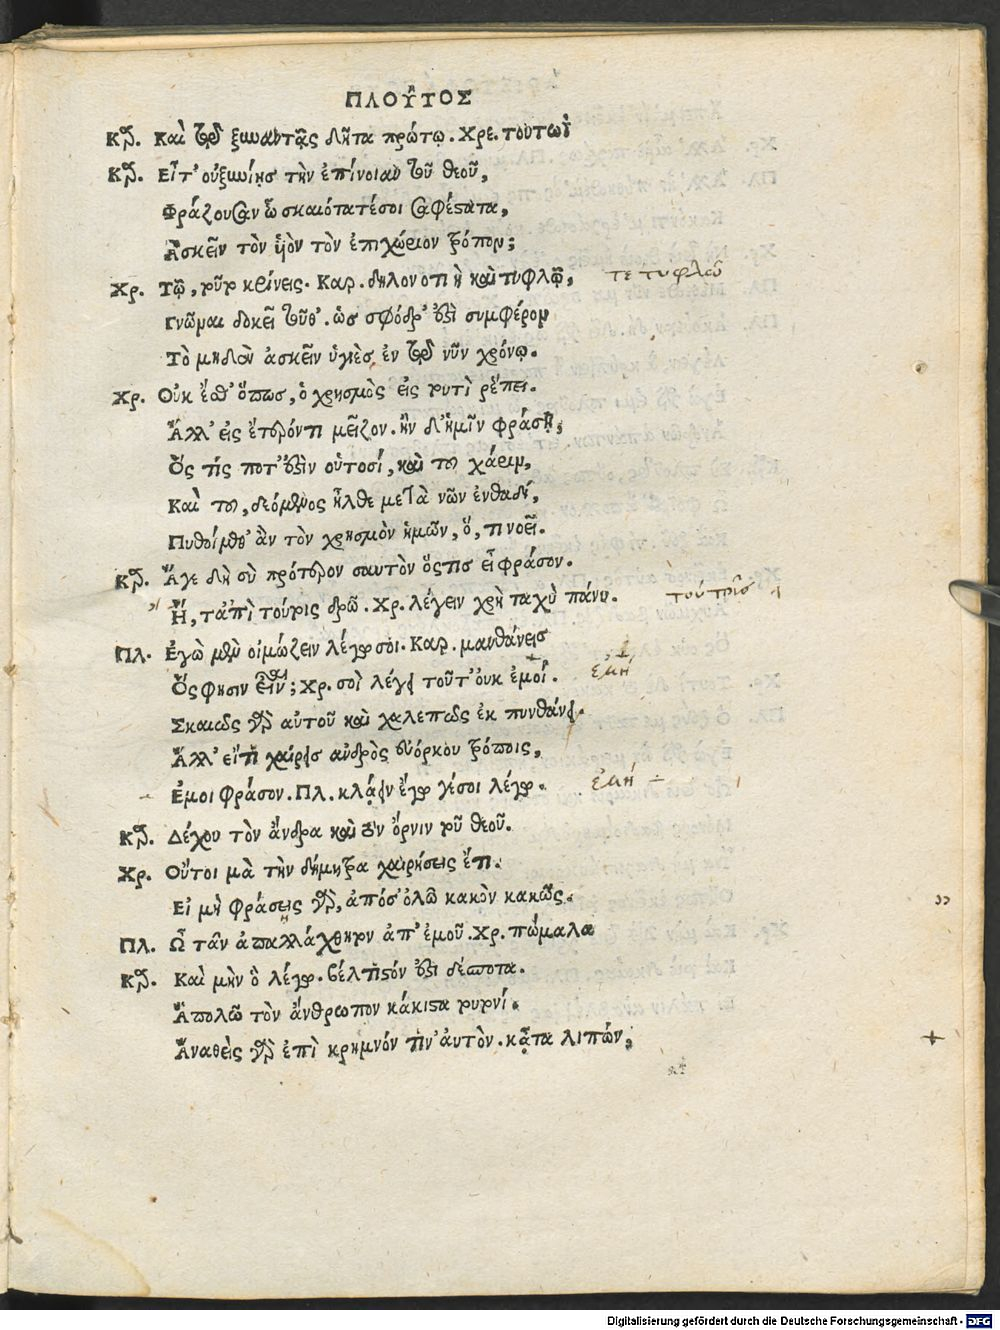 ΠΛΟΥ͂ΤΟΣ
Κρ. Καὶ τῷ ξυναντᾷς δῆτα πρώτῳ. Χρε. τουτῳῒ
Κρ. Εἶτ' οὐξυνίης τὴν ἐπίνοιαν τοῦ θεοῦ,
Φράζουσαν ὦ σκαιότατέσοι σαφέστατα,
Ἀσκεῖν τὸν ὑὸν τὸν ἐπιχώριον τρόπον;
Χρ. Τῷ, τοῦτο κρίνεις. Καρ. δηλονοτιὴ καὶ τυφλῷ, τε τυφλῶ
Γνῶμαι δοκεῖ τοῦθ'. ὡς σφόδρ' ἐστὶ συμφέρον
Τὸ μηδὲν ἀσκεῖν ὑγιὲς ἐν τῷ νῦν χρόνῳ.
Χρ. Οὐκ ἔσθ' ὅπως, ὁ χρησμὸς εἰς τουτὶ ῥέπει.
Ἀλλ' εἰς ἕτερόντι μεῖζον. ἢν δ'ἡμῖν φράσῃ,
Ὅς τίς ποτ' ἐστὶν οὑτοσί, καὶ του χάριν,
Καὶ του, δεόμενος ἦλθε μετὰ νῶν ἐνθαδί,
Πυθοίμεθ' ἂν τὸν χρησμὸν ἡμῶν, ὅ, τι νοεῖ.
Κρ. Ἄγε δὴ σὺ πρότερον σαυτὸν ὅστις εἶ φράσον.
Ἢ, τἀπὶ τούτοις δρῶ. Χρ. λέγειν χρὴ ταχὺ πάνυ. τούτοις
Πλ. Ἐγὼ μὲν οἰμώζειν λέγω σοι. Καρ. μανθάνεις
Ὅς φησιν εἶναι; Χρ. σοὶ λέγει τοῦτ' οὐκ ἐμοί. ἐμή
Σκαιῶς γὰρ αὐτοῦ καὶ χαλεπῶς ἐκ πυνθάνει.
Ἀλλ' εἴτι χαίρεις ἀνδρὸς εὐόρκου τρόποις,
Ἐμοι φράσον. Πλ. κλάειν ἔγω γέσοι λέγω. ἐμή
Κρ. Δέχου τὸν ἄνδρα καὶ τὸν ὄρνιν τοῦ θεοῦ.
Χρ. Οὔτοι μὰ τὴν δήμητρα χαιρήσεις ἔτι.
Εἰ μὴ φράσεις γὰρ, ἀπόσ' ὀλῶ κακὸν κακῶς.
Πλ. Ὦ τᾶν ἀπαλλάχθητον ἀπ' ἐμοῦ. Χρ. πώμαλα
Κρ. Καὶ μὴν ὃ λέγω. βέλτιστόν ἐστι δέσποτα.
Ἀπολῶ τὸν ἄνθρωπον κάκιστα τουτονί.
Ἀναθεὶς γὰρ ἐπὶ κρημνόν τιν' αὐτὸν. κᾆτα λιπών,
Digitalisierung gefördert durch die Deutsche Forschungsgemeinschaft - DFG